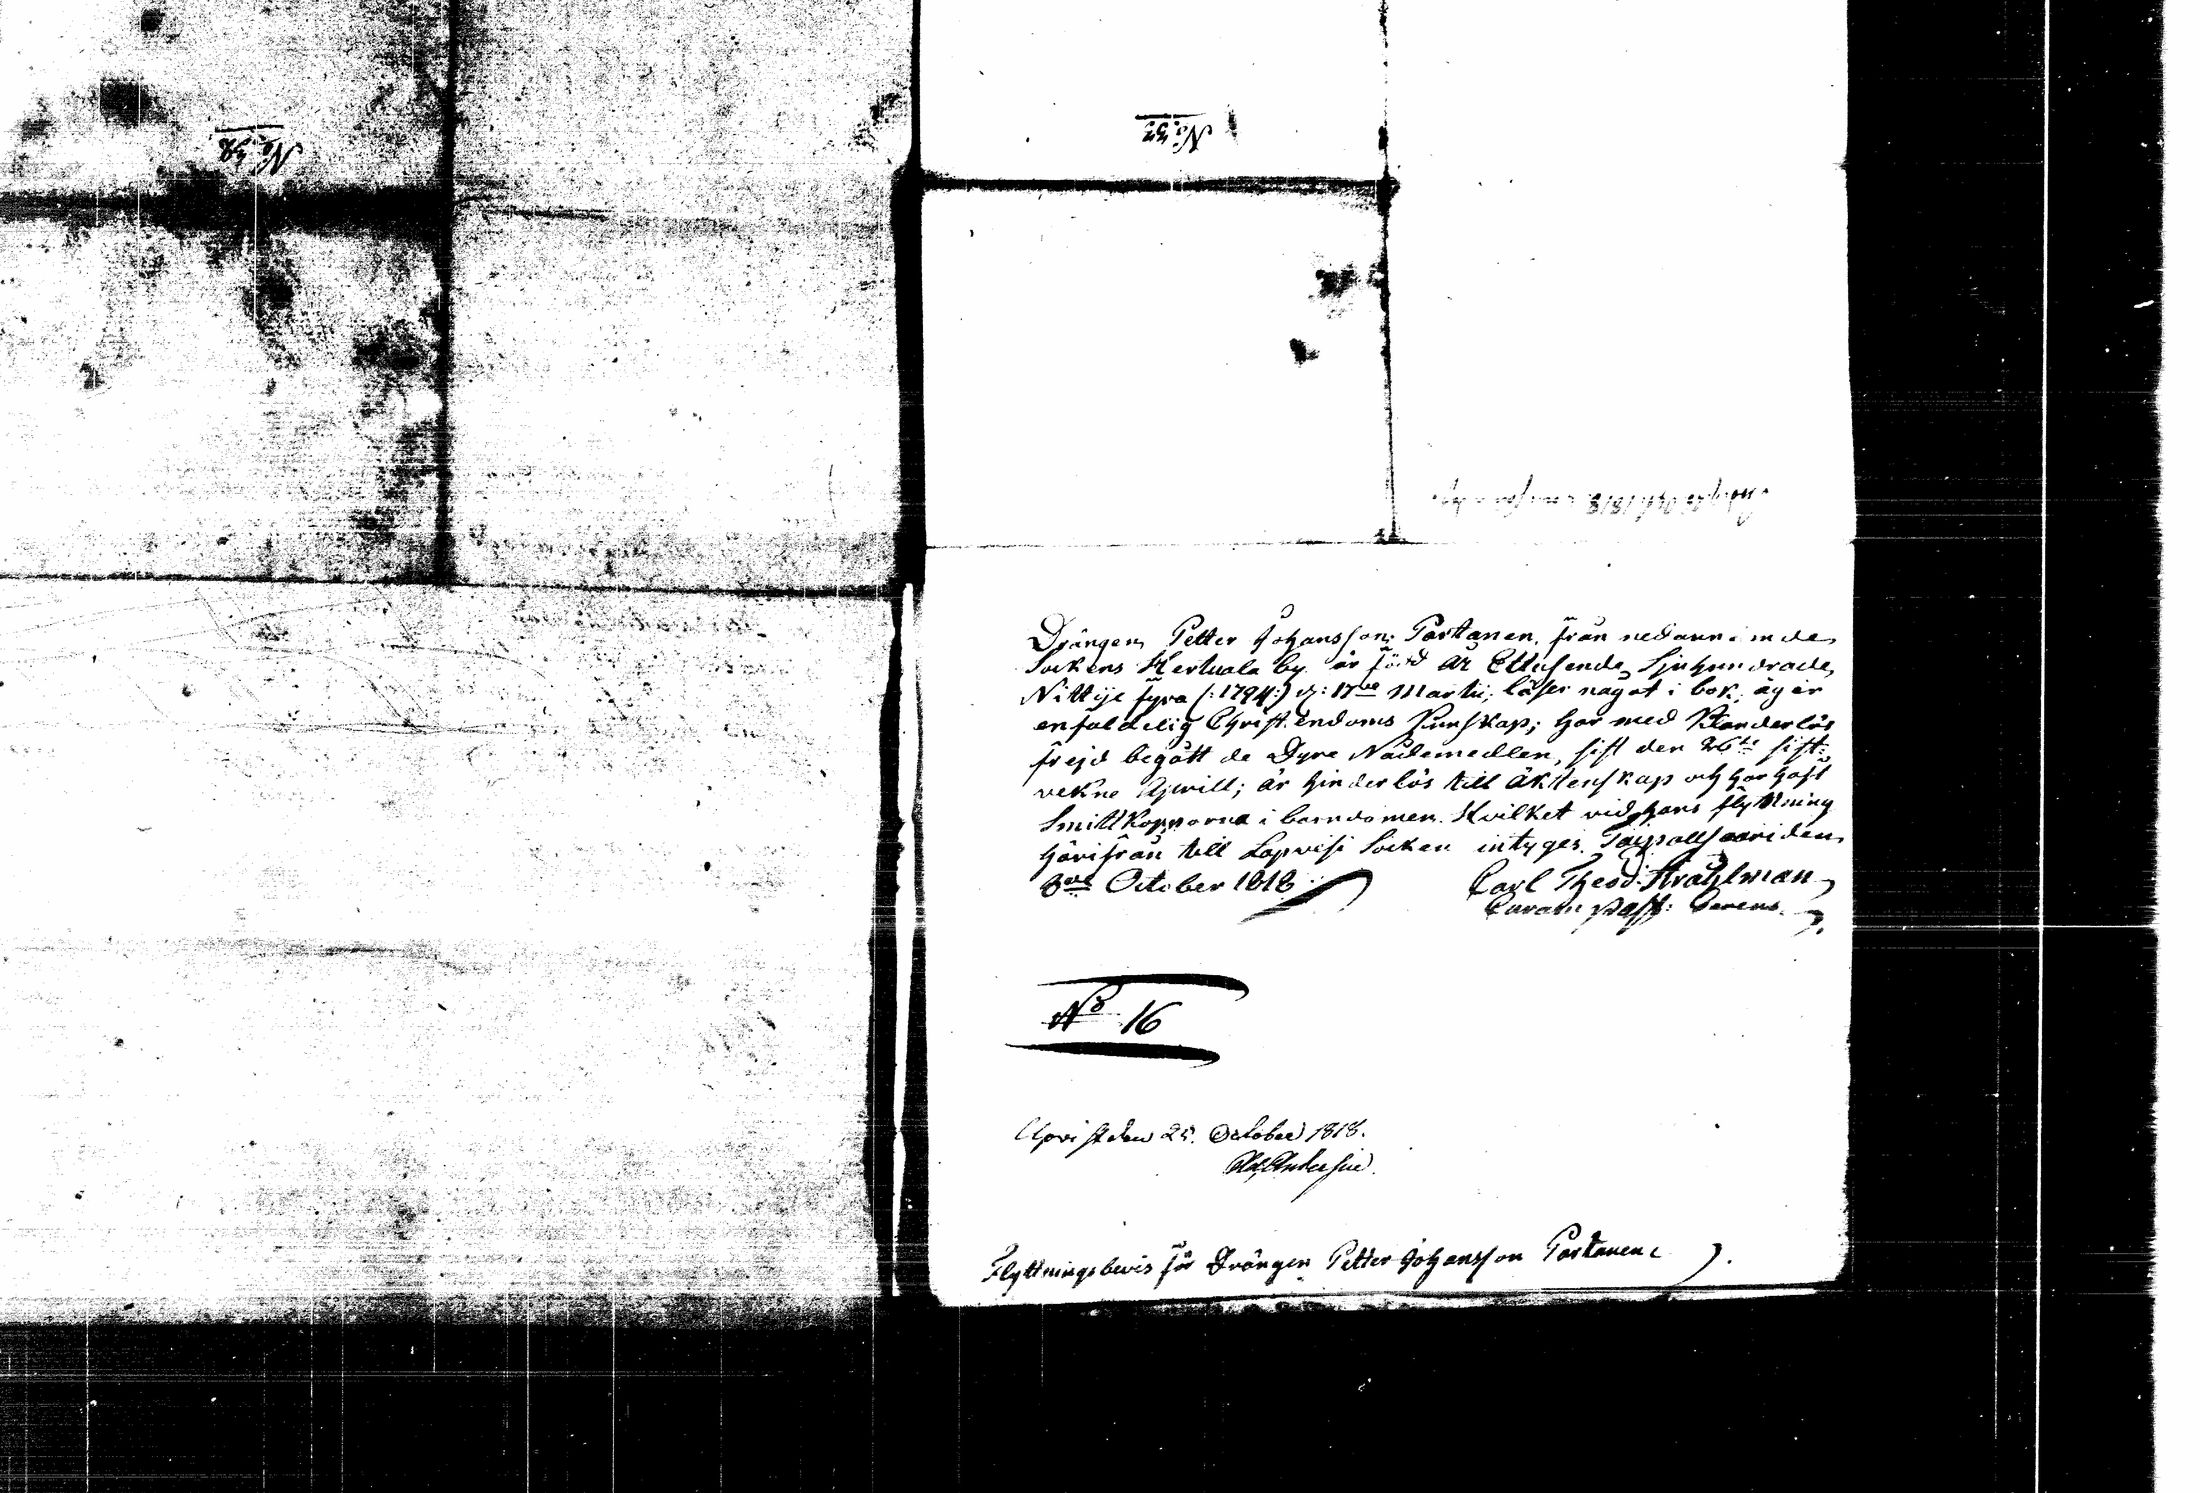 No 38
No 37
Drängen Petter Johansson Partanen, från nedannämde
Sockens Kertuala by är född år Ettusende Sjuhundrade
Nittije fyra (:1794:) d: 17de Martii; läser något i bok, äger
enfaldelig Christendoms Kunskap; har med Klanderlös
frejd begått de Dyre Nådemedlen, sist den 26te sist-
vekne Aprill; är hinderlös till Äktenskap och har haft
Smittkopporna i barndomen. Hvilket vid hans flyttning
härifrån till Lapvesi Socken intygas. Taipallsaari den
8de October 1818.
Carl Theod. Stråhlman
Curam past: Gerens.
No 16
Upvist den 25. October 1818.
Flyttningsbevis för Drängen Petter Johansson Partanen